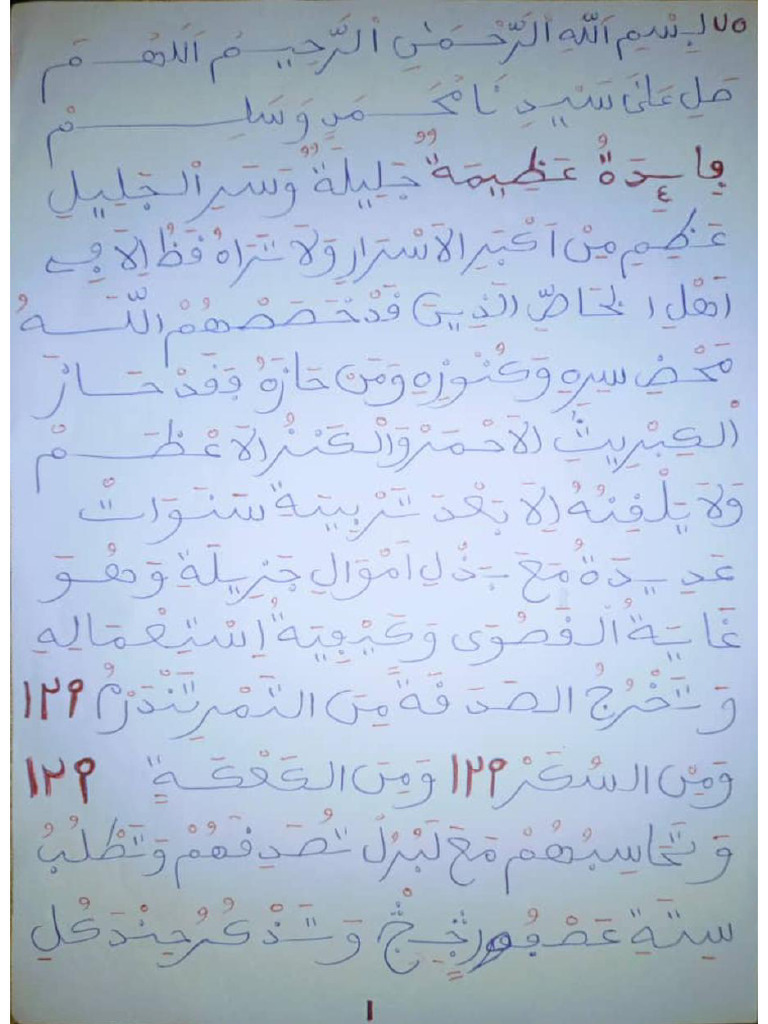 ٧٥ بِسْمِ اَللَّهِ اَلرَّحْمَنِ اْلرَّحِيمِ اَللَهُمَ
صَلِ عَلَىَ سَيِدِ نَا مُحَمَدٍ وَسَلِمْ
فِاىِٕدَةٌ عَظِيمَةٌ جَلِيلَةٌ وَسَيرِ اْلجَلِيلِ
عَظِيمِ مِنْ اَكْبَيرِ الاَسْرَارِ وَلاَ تَرَاهُ فَظُ اِلاَ فِے
اَهْلِ الخَاصِّ الَذِينَ قَدْ خَصَصْهُمْ اللَّهُ
مَحْضِ سِيرِهِ وَكُنُوزِهِ وَمَنْ حَازَهُ فَقَدْ حَازَ
اْلكِبْرِيتُ الاَحْمَرْ وَالْكَنْزُ الاَعْظَمْ
وَلاَ يَلْفِنُهُ اِلاَ بَعْدَ تَرْبِيَةٌ سَنَوَاتْ
عَدِيدَةٌ مَعَ بَذْلِ اَمْوَالٍ جَزِيلَةٍ وَهُوَ
غَايَةُ اَلْقُصْوَى وَكَيْفِيَةُ اِسْتِعْمَالِهِ
وَتَخْرُجُ الصَدَقَةٌ مِنَ التَمْرِ تَنْدَرَمُ ١٢٩
وَمِنْ السُكَرْ ١٢٩ وَمِنَ الكَعْكَةٍ ١٢٩
وَتَحَاسِبُهُمْ مَعَ لَبْرُلْ تُصَدِقَهُمْ وَتَطْلُبُ
سِتَةَ عَصْفُورٍ وَتَذْكُرُ عِنْدَ كُلِ
١